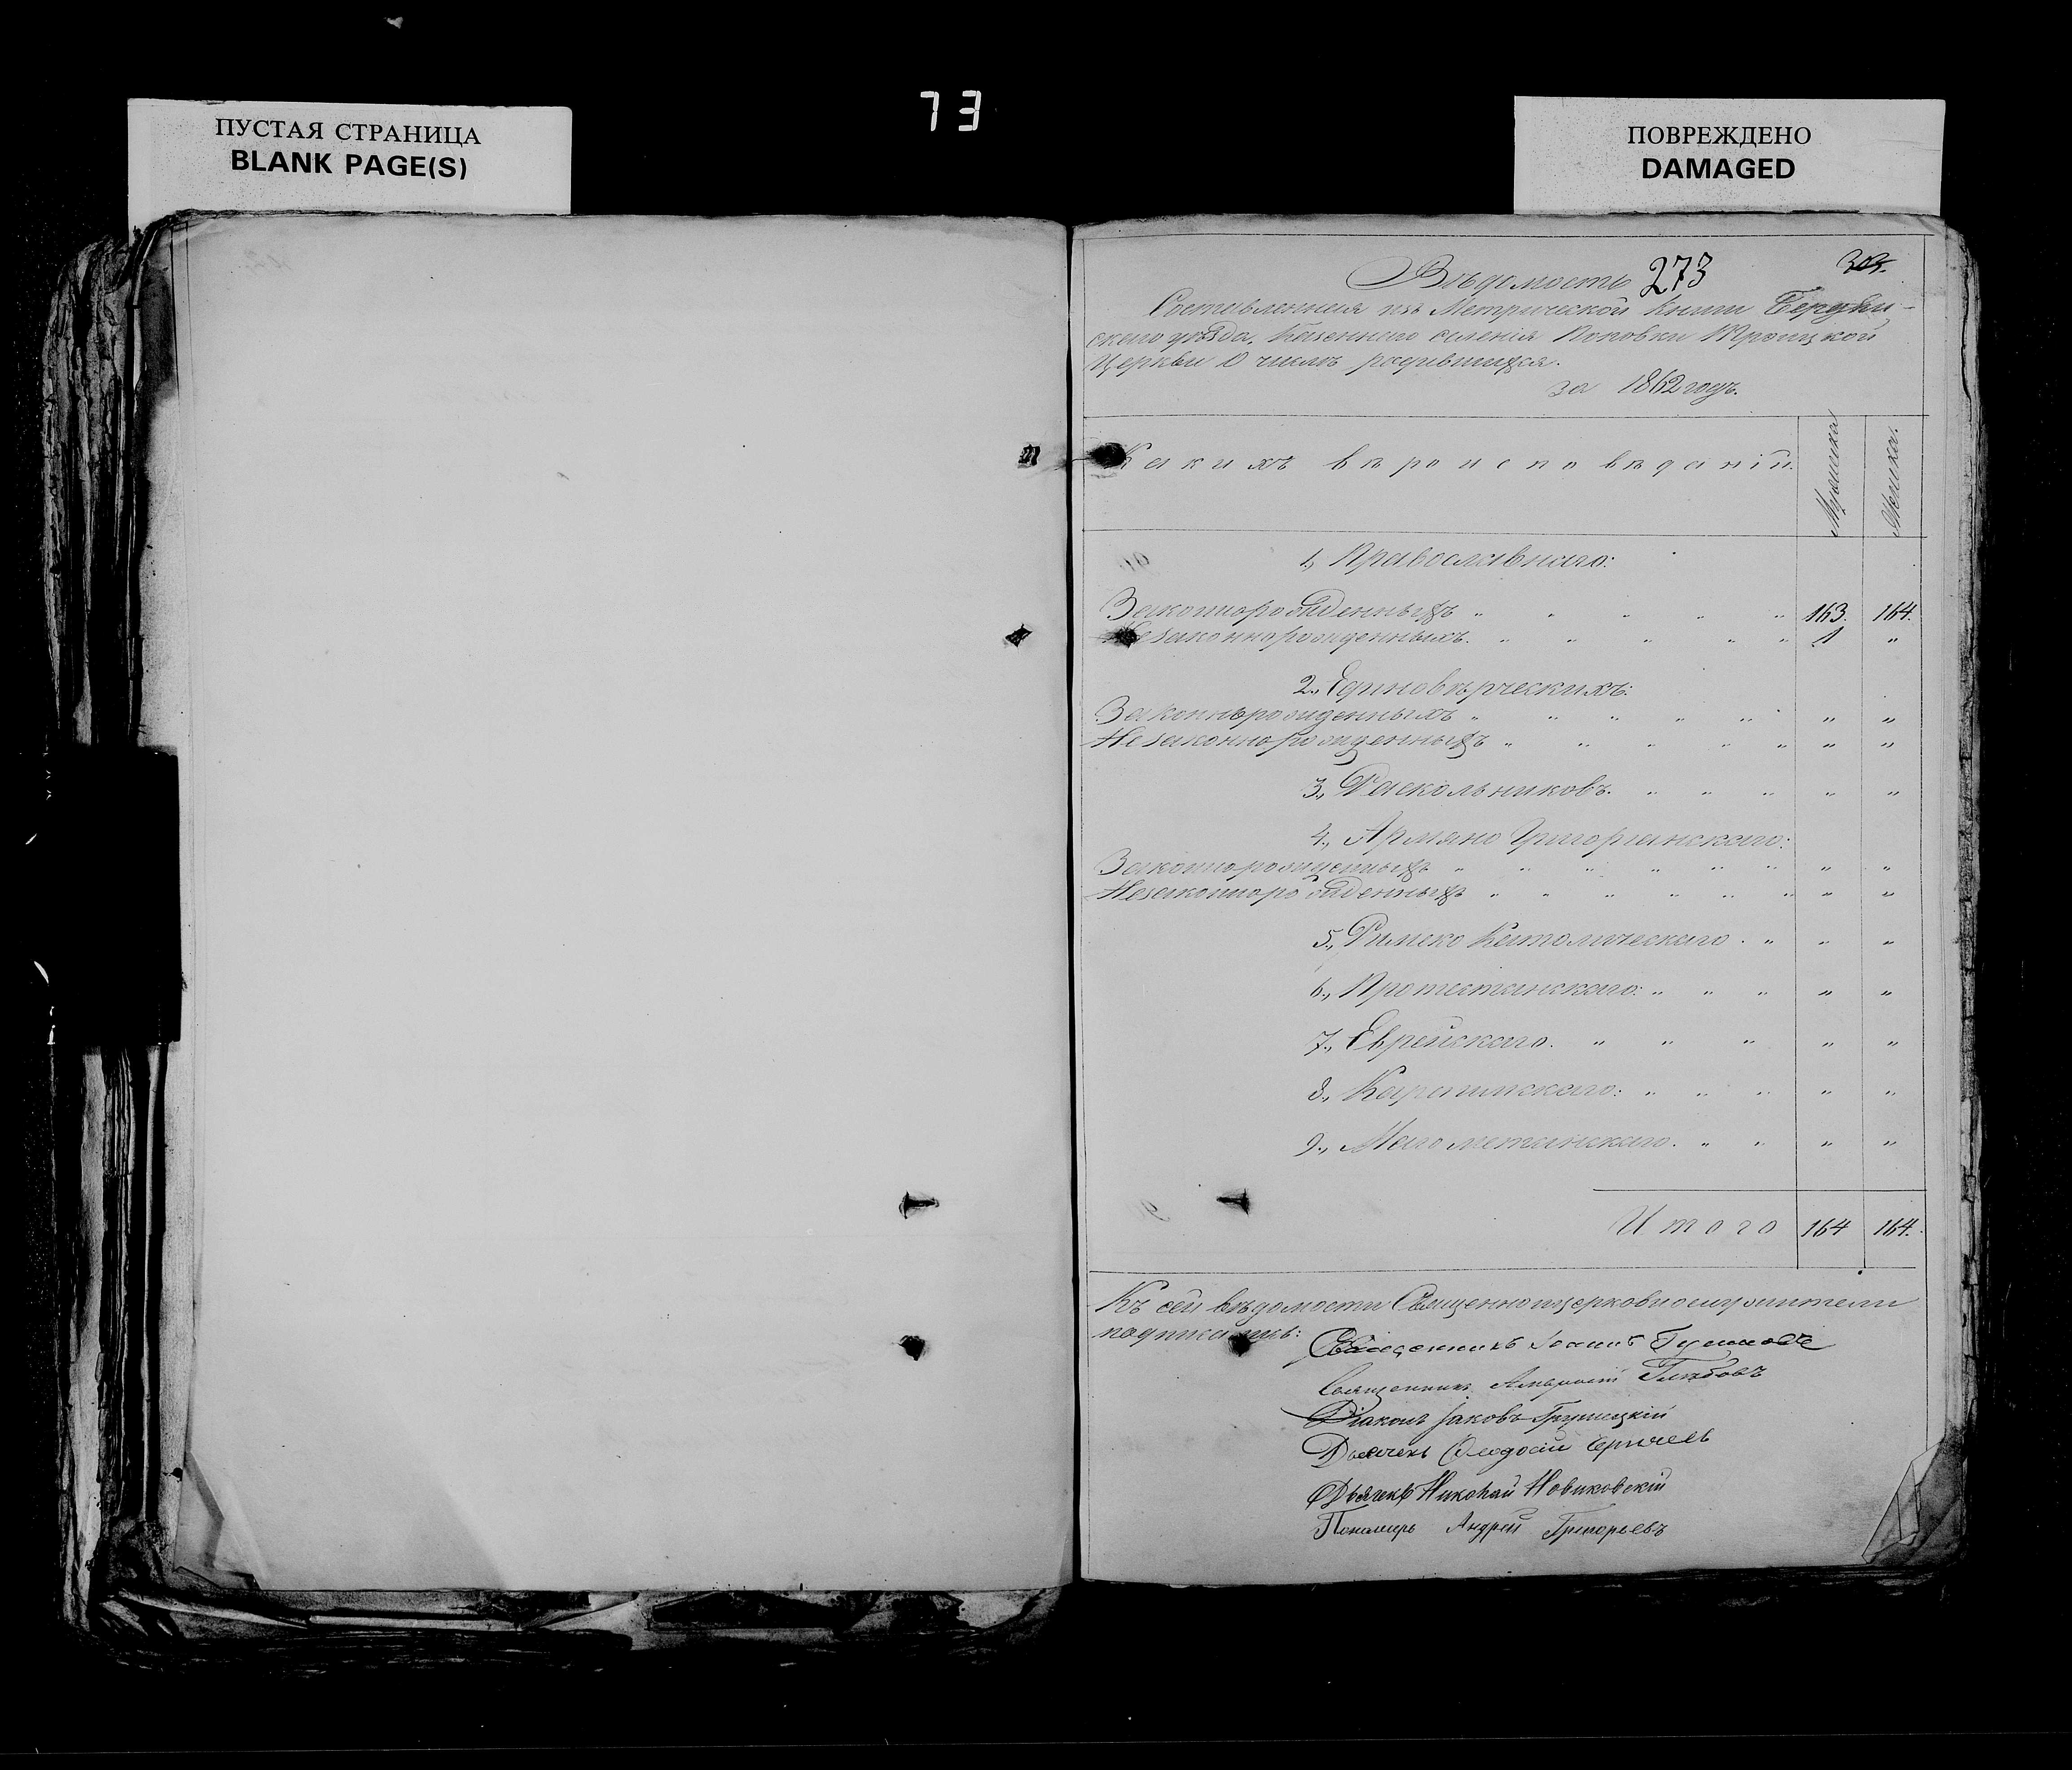 73
ПУСТАЯ СТРАНИЦА
BLANK PAGE(S)
ПОВРЕЖДЕНО
DAMAGED
Вѣдомость 273
Составленная изъ Метрической книги Бердян-
скаго уѣзда, Казеннаго селенія Поповки Троицкой
Церкви О числѣ родившихся.
за 1862 годъ.
Какихъ вѣроисповѣданій. Мужеска Женска.
1., Православнаго:
Законнорожденныхъ " " " " " 163. 164.
Незаконнорожденныхъ. " " " " " 1 "
2., Единовѣрческихъ:
Законнорожденныхъ " " " " " " "
Незаконнорожденныхъ " " " " " " "
3., Раскольниковъ. " " " " "
4., Армяно Григоріанскаго:
Законнорожденныхъ " " " " " " " "
Незаконнорожденныхъ " " " " " " " "
5., Римско Католическаго. " " "
6., Протестанскаго: " " " " "
7., Еврейскаго. " " " " "
8., Караимскаго: " " " " "
9., Магометанскаго. " " " "
Итого 164 164.
Къ сей вѣдомости Священноцерковнослужители
подписались:
Священникъ Іоаннъ
Священникъ Амвросій Глѣбовъ
Діаконъ Іаковъ Грушецкій
Дьячекъ Ѳеодосій
Дьячекъ Николай Новиковскій
Пономарь Андрей Григорьевъ